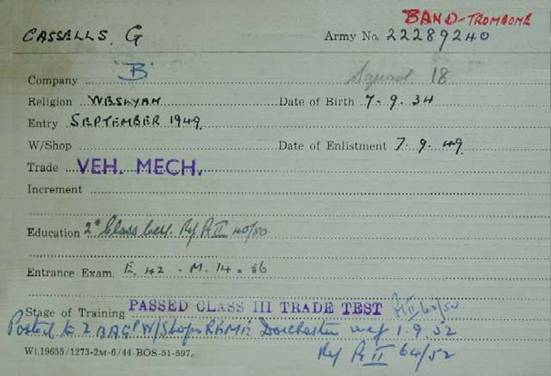 BAND-TROMBONE
CASSELLS. G Army No. 22289240
Company "B" Squad 18
Religion WESLYAN Date of Birth 7.9.34
Entry SEPTEMBER 1949
W/Shop Date of Enlistment 7.9.49
Trade VEH. MECH.
Increment
Education 2° Class Cert. Ref Pt II 40/50
Entrance Exam. E. 42 - M. 14. 56
Stage of Training PASSED CLASS III TRADE TEST Pt II 60/52
Posted to 2 BAGP W/Shops REME Dorchester wef 1.9.52
Ref Pt II 64/52
Wt.19655/1273-2M-6/44-BOS-51-597.